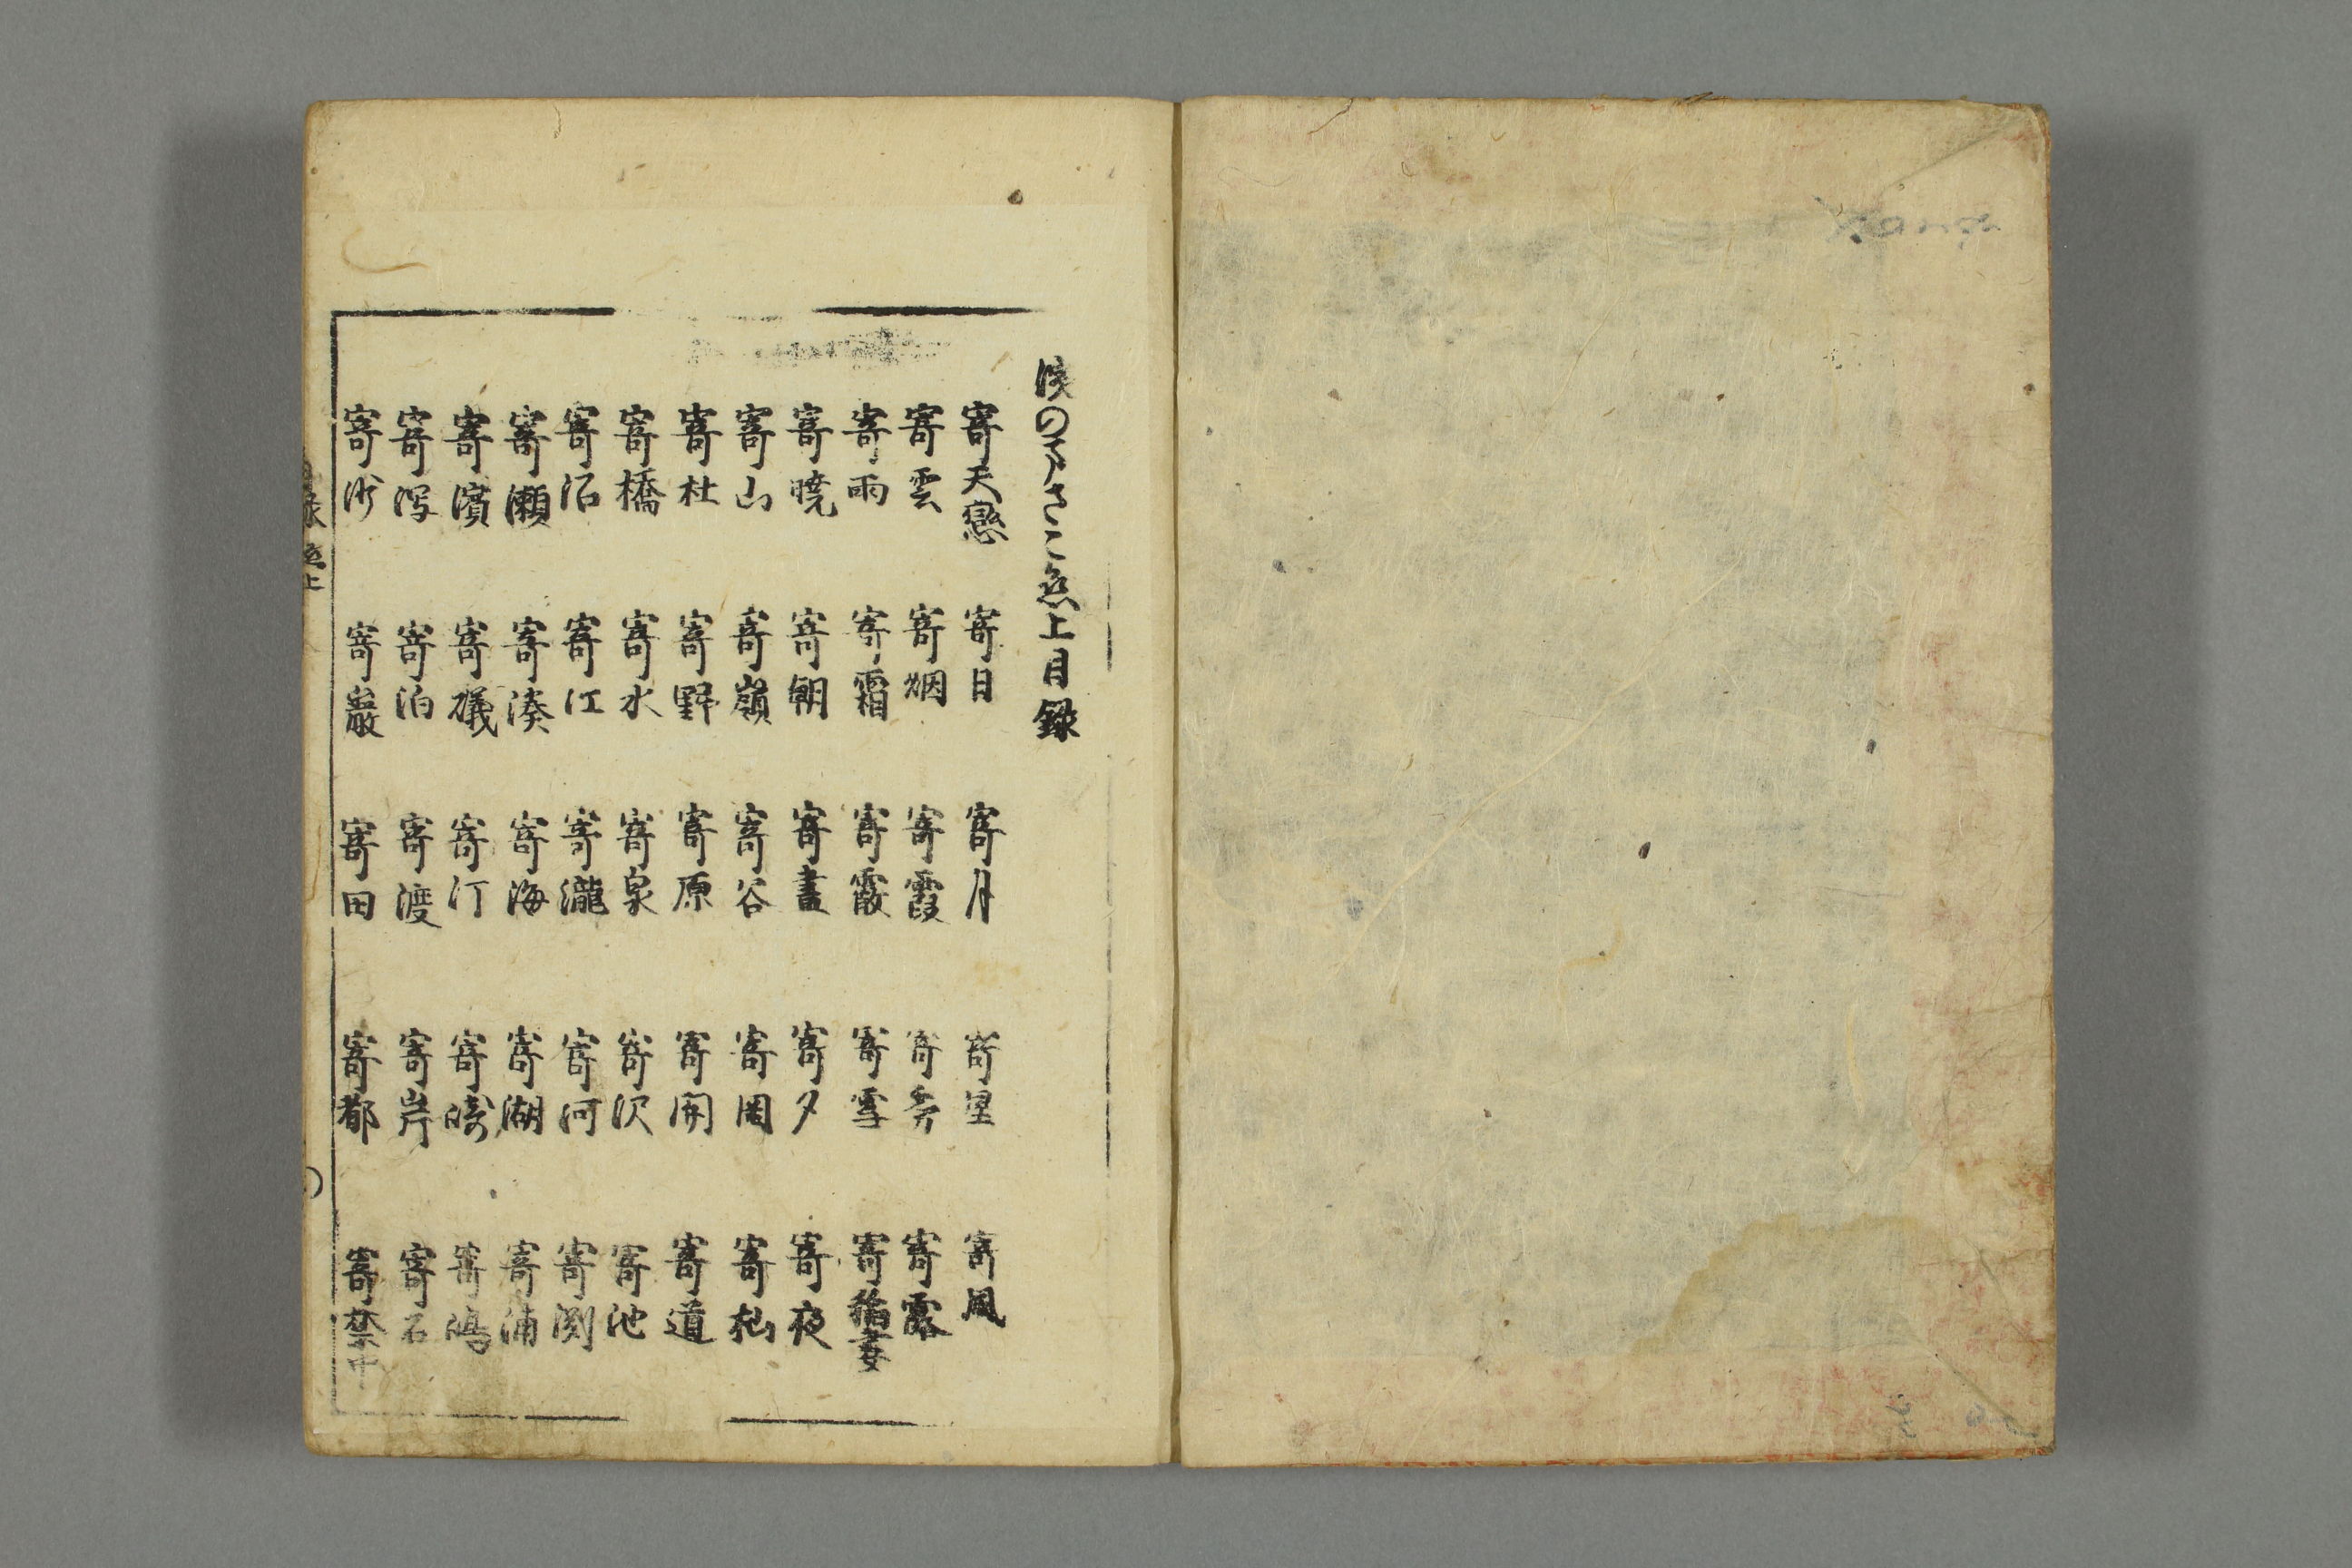 渓のまさこ恋上目録
寄天戀 寄日 寄月 寄星 寄風
寄雲 寄烟 寄霞 寄雾 寄露
寄雨 寄霜 寄霰 寄雪 寄稲妻
寄暁 寄朝 寄晝 寄夕 寄夜
寄山 寄嶺 寄谷 寄岡 寄杣
寄杜 寄野 寄原 寄関 寄道
寄橋 寄水 寄泉 寄沢 寄池
寄沼 寄江 寄瀧 寄河 寄渕
寄瀬 寄湊 寄海 寄湖 寄浦
寄濱 寄礒 寄汀 寄崎 寄嶋
寄泻 寄泊 寄渡 寄岸 寄石
寄沙 寄巌 寄田 寄都 寄禁中
目録 恋上